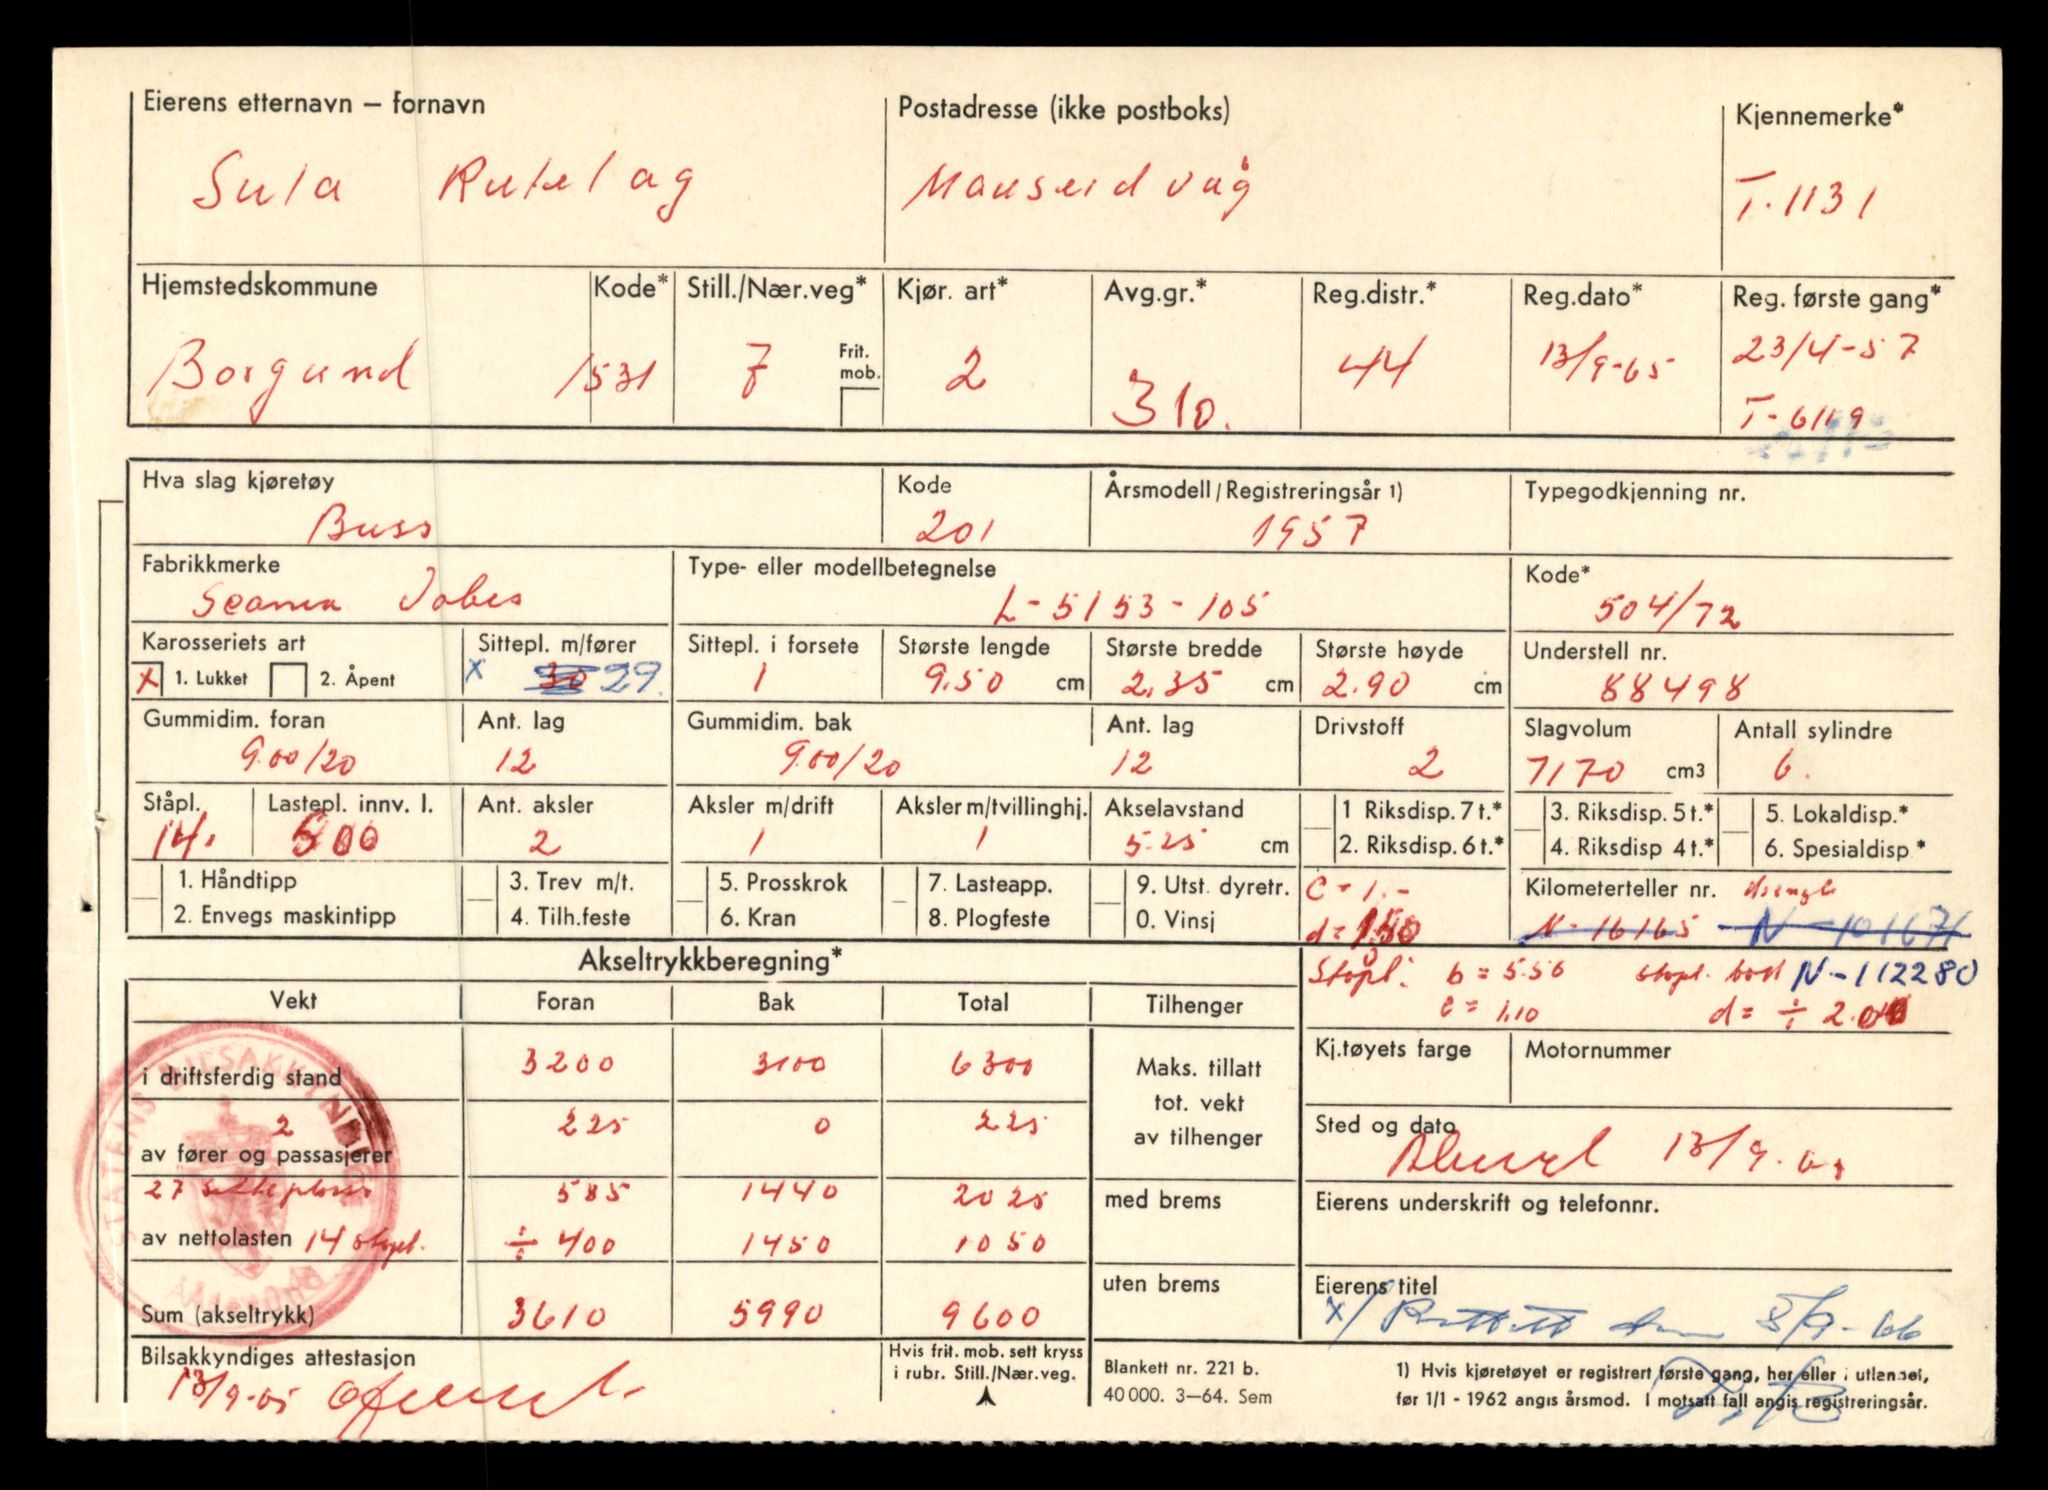 Eierens etternavn – fornavn
Postadresse (ikke postboks)
Kjennemerke*
Sula Rutelag
Mauseidvåg
T-1131
Hjemstedskommune
Kode*
Still./Nær.veg*
Kjør. art*
Avg.gr.*
Reg.distr.*
Reg.dato*
Reg. første gang*
Borgund
1531
7
Frit. mob.
2
310.
44
13/9-65
23/4-57
T-6119
Hva slag kjøretøy
Kode
Årsmodell/Registreringsår 1)
Typegodkjenning nr.
Buss
201
1957
Fabrikkmerke
Type- eller modellbetegnelse
Kode*
Scania Vabis
L-5153-105
504/72
Karosseriets art
Sittepl. m/fører
Sittepl. i forsete
Største lengde
Største bredde
Største høyde
Understell nr.
X 1. Lukket 2. Åpent
x 30 29.
1
9.50 cm
2.35 cm
2.90 cm
88498
Gummidim. foran
Ant. lag
Gummidim. bak
Ant. lag
Drivstoff
Slagvolum
Antall sylindre
9.00/20
12
9.00/20
12
2
7170 cm3
6.
Ståpl.
Lastepl. innv. l.
Ant. aksler
Aksler m/drift
Aksler m/tvillinghj.
Akselavstand
1 Riksdisp. 7 t.*
3. Riksdisp. 5 t.*
5. Lokaldisp.*
14.
500
2
1
1
5.25 cm
2. Riksdisp. 6 t.*
4. Riksdisp 4 t.*
6. Spesialdisp *
1. Håndtipp
3. Trev m/t.
5. Prosskrok
7. Lasteapp.
9. Utst. dyretr.
c = 1.-
Kilometerteller nr.
2. Envegs maskintipp
4. Tilh.feste
6. Kran
8. Plogfeste
0. Vinsj
d = 1.50
N-16165 N-101671
Akseltrykkberegning*
Ståpl. b = 5.56 N-112280
c = 1.10 d = ÷ 2.00
Vekt
Foran
Bak
Total
Tilhenger
i driftsferdig stand
3200
3100
6300
Maks. tillatt
tot. vekt
av tilhenger
Kj.tøyets farge
Motornummer
2
av fører og passasjerer
225
0
225
Sted og dato
13/9-65
27 sitteplasser
585
1440
2025
med brems
Eierens underskrift og telefonnr.
av nettolasten 14 ståpl.
÷ 400
1450
1050
uten brems
Eierens titel
Sum (akseltrykk)
3610
5990
9600
x/ Rettet den 8/9-66
Bilsakkyndiges attestasjon
13/9-65
Hvis frit. mob. sett kryss
i rubr. Still./Nær.veg.
Blankett nr. 221 b.
40 000. 3–64. Sem
1) Hvis kjøretøyet er registrert første gang, her eller i utlandet,
før 1/1 - 1962 angis årsmod. I motsatt fall angis registreringsår.
STATENS BILSAKKYNDIGE